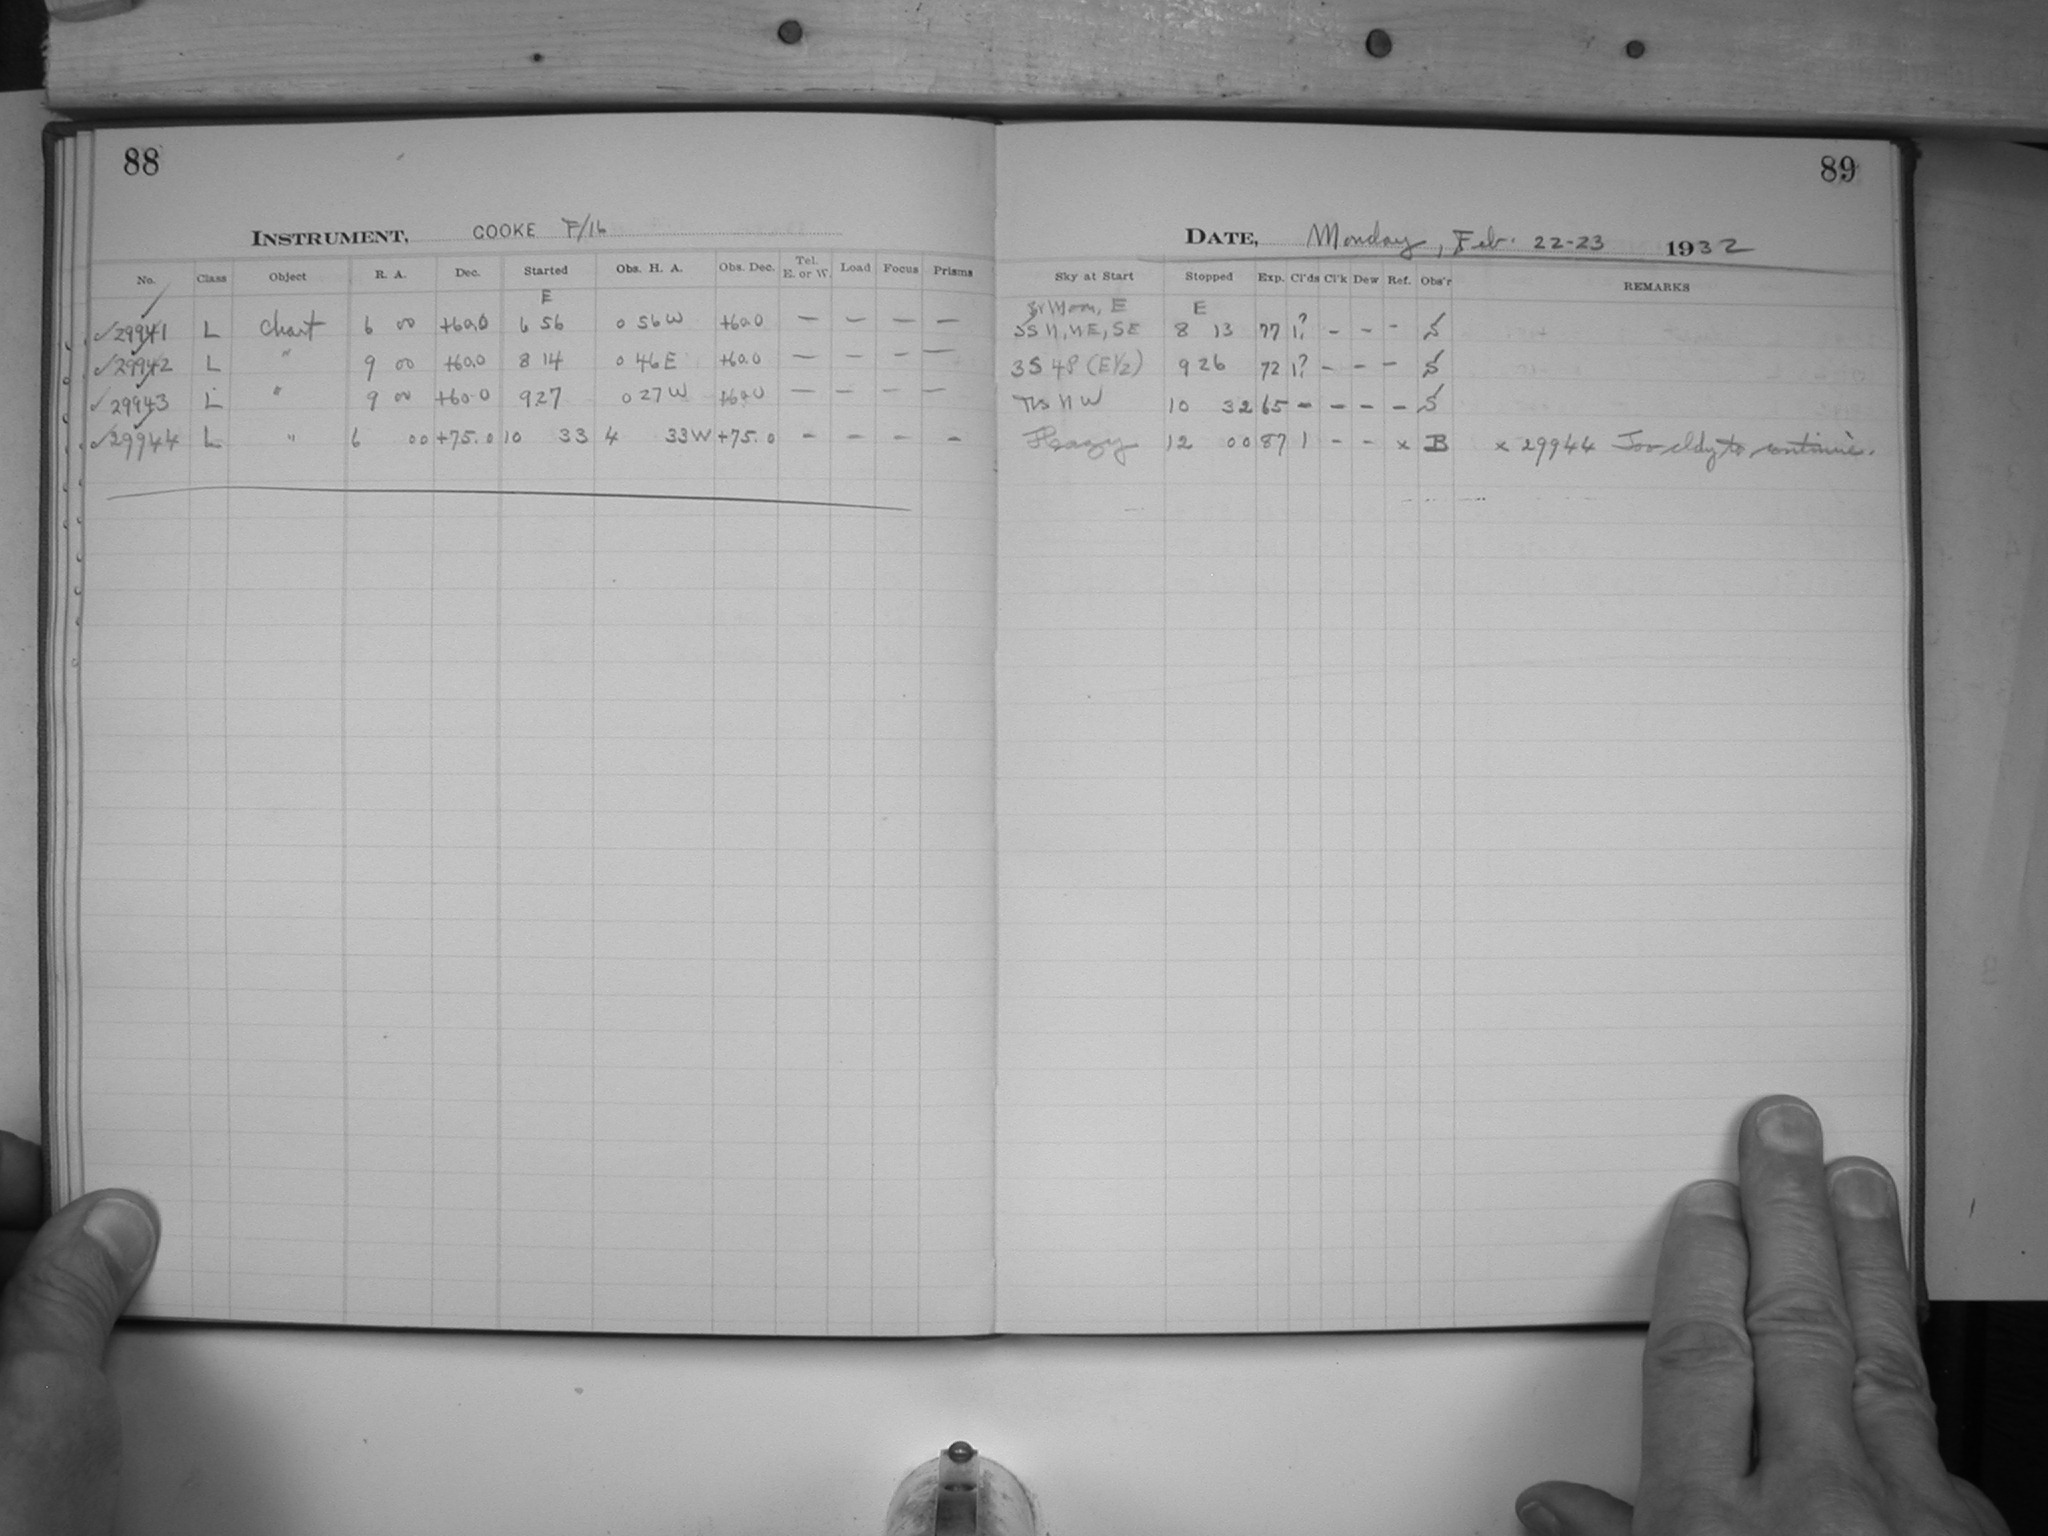 88
INSTRUMENT, COOKE F/16
No. Class Object R. A. Dec. Started Obs. H. A. Obs. Dec. Tel. E. or W. Load Focus Prisms
E
✓29941 L Chart 6 00 +60.0 6 56 0 56 W +60.0 — — — —
✓29942 L " 9 00 +60.0 8 14 0 46 E +60.0 — — — —
✓29943 L " 9 00 +60.0 9 27 0 27 W +60.0 — — — —
✓29944 L " 6 00 +75.0 10 33 4 33 W +75.0 - - - -
89
DATE, Monday, Feb. 22-23 1932
Sky at Start Stopped Exp. Cl'ds Cl'k Dew Ref. Obs'r REMARKS
Moon, E E
SS N, NE, SE 8 13 77 1? - - - S
3S 4P (E½) 9 26 72 1? - - - S
N W 10 32 65 - - - - S
Hazy 12 00 87 1 - - x B x 29944 Too cldy to continue.